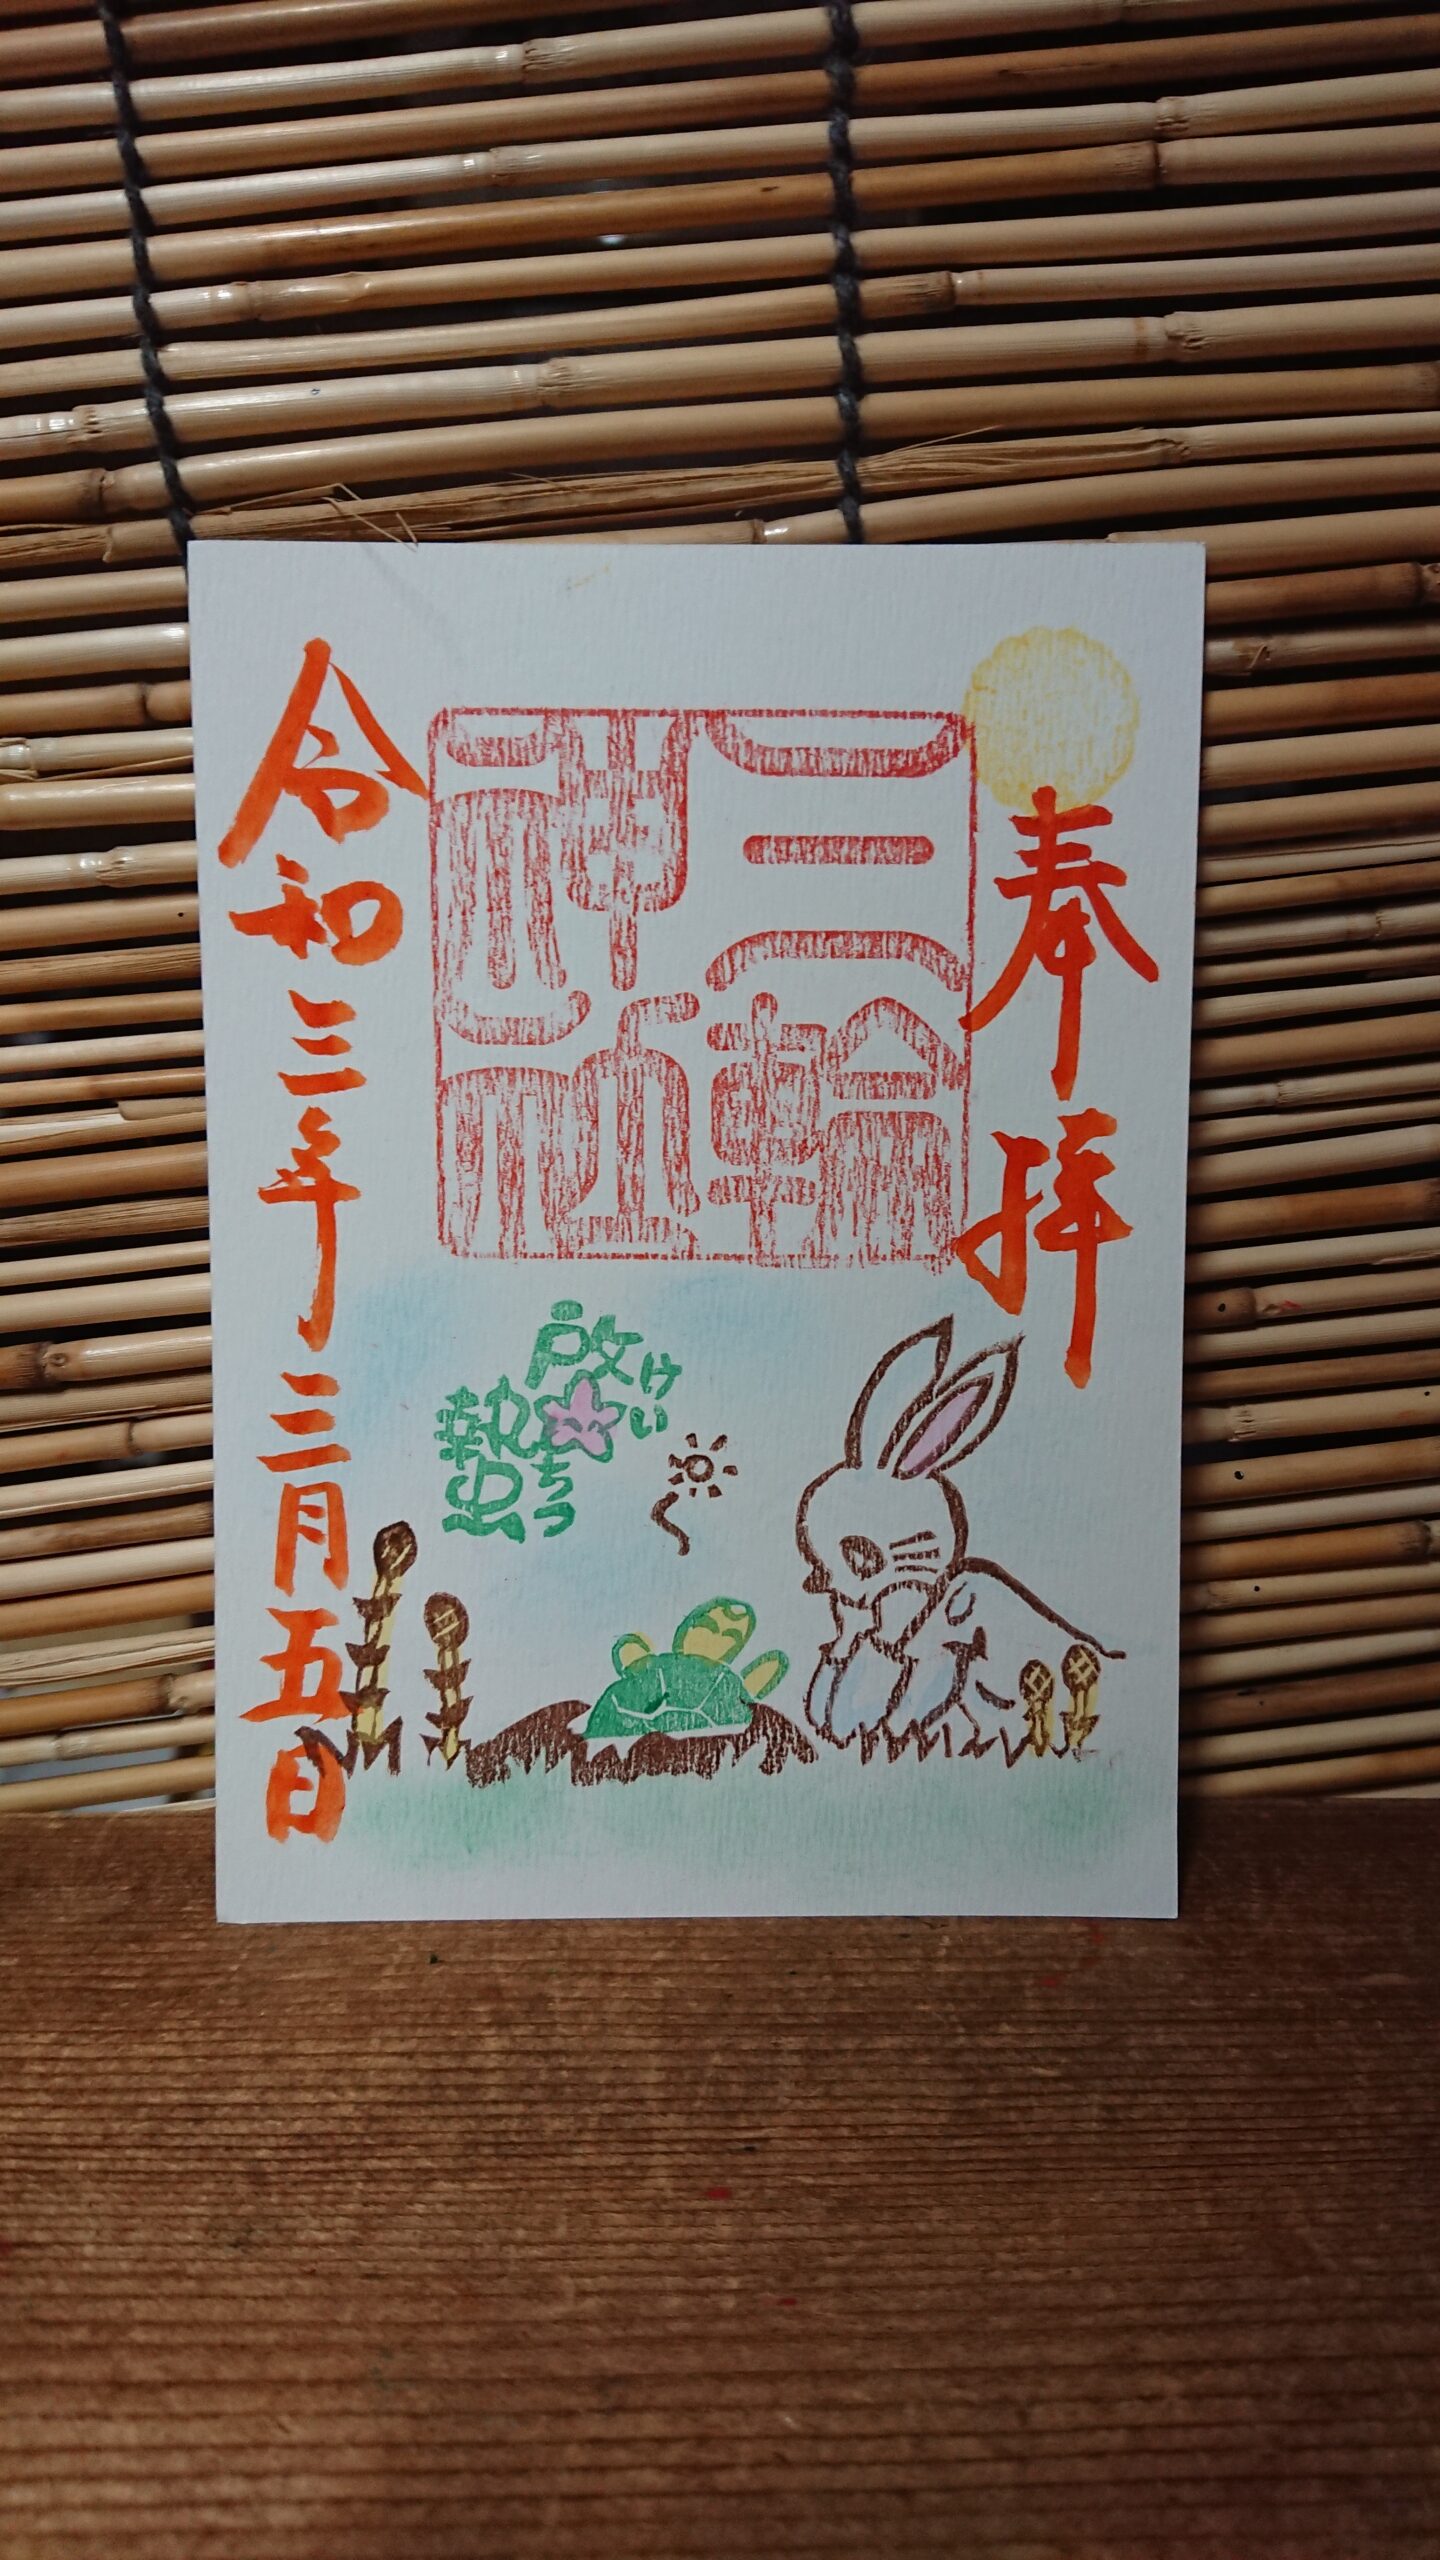 奉拝
三輪
神社
啓蟄
けい
ちつ
令和三年三月五日